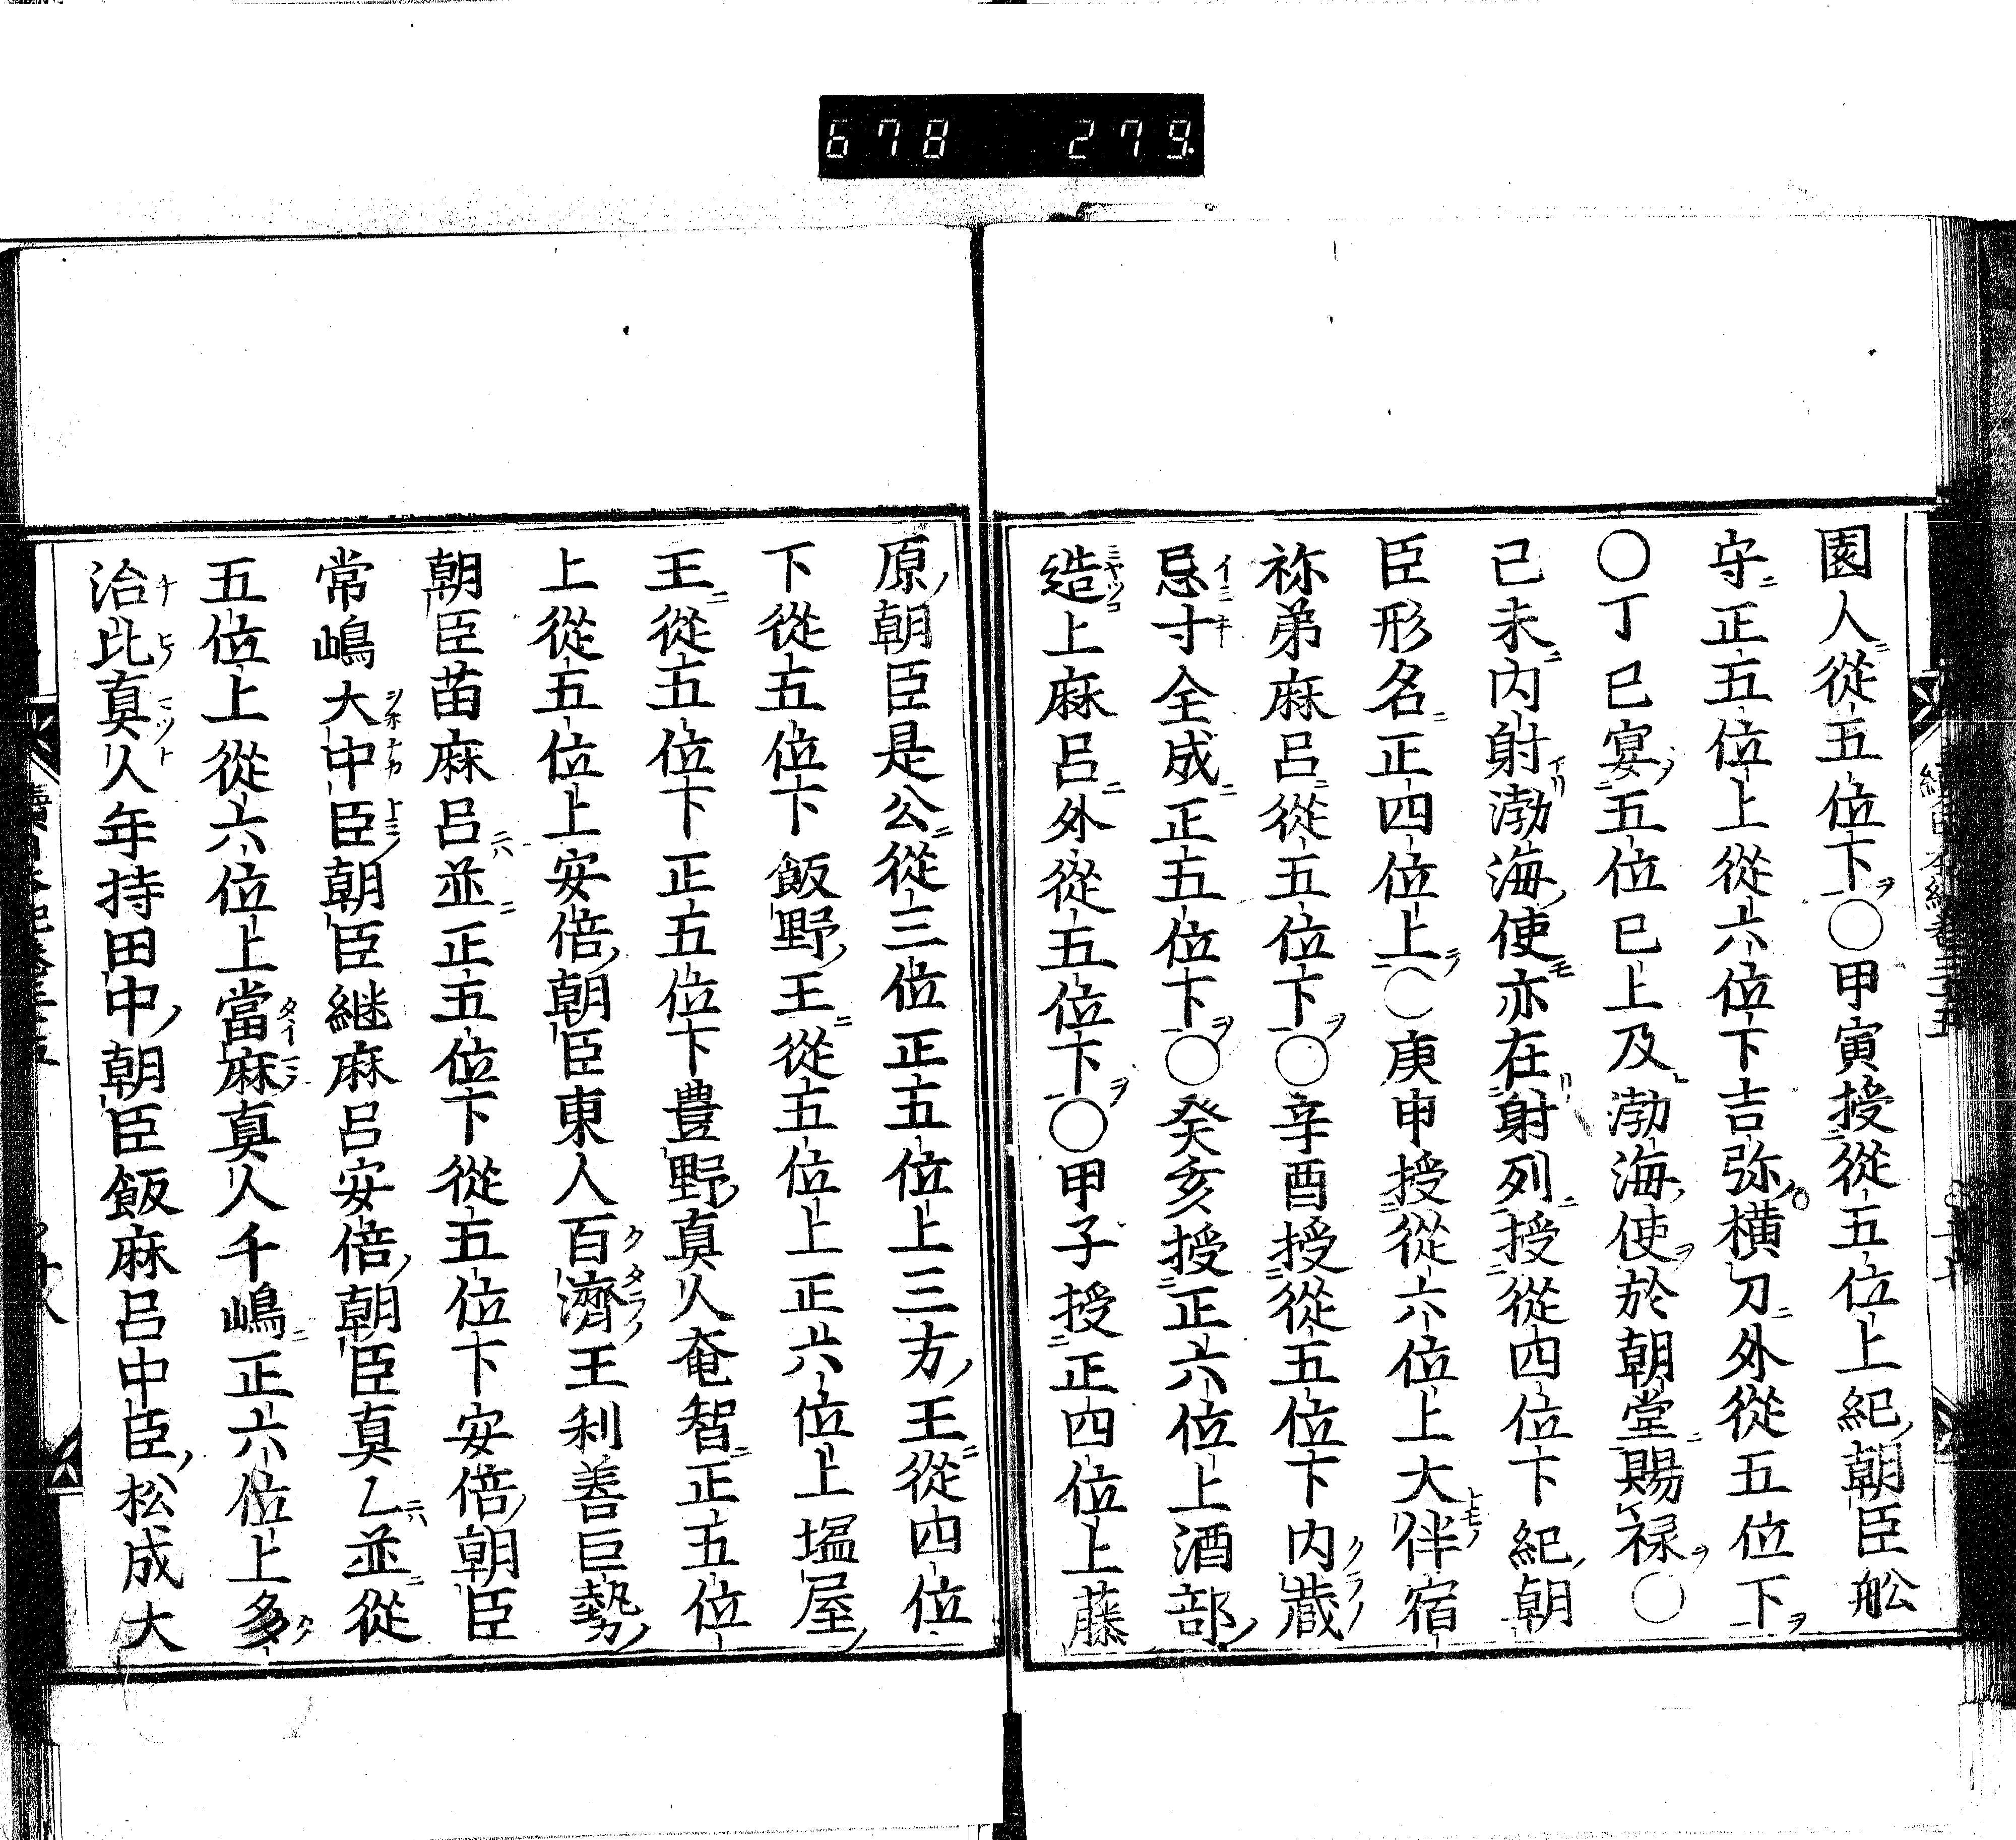 678 279
園人從五位下○甲寅授從五位上紀朝臣舩
守正五位上從六位下吉弥横刀外從五位下
○丁巳宴五位已上及渤海使於朝堂賜禄○
己未内射渤海使亦在射列授從四位下紀朝
臣形名正四位上○庚申授從六位上大伴宿
祢弟麻呂從五位下○辛酉授從五位下内藏
忌寸全成正五位下○癸亥授正六位上酒部
造上麻呂外從五位下○甲子授正四位上藤
原朝臣是公從三位正五位上三方王從四位
下從五位下飯野王從五位上正六位上塩屋
王從五位下正五位下豊野真人奄智正五位
上從五位上安倍朝臣東人百濟王利善巨勢
朝臣苗麻呂並正五位下從五位下安倍朝臣
常嶋大中臣朝臣継麻呂安倍朝臣真乙並從
五位上從六位上當麻真人千嶋正六位上多
治比真人年持田中朝臣飯麻呂中臣松成大